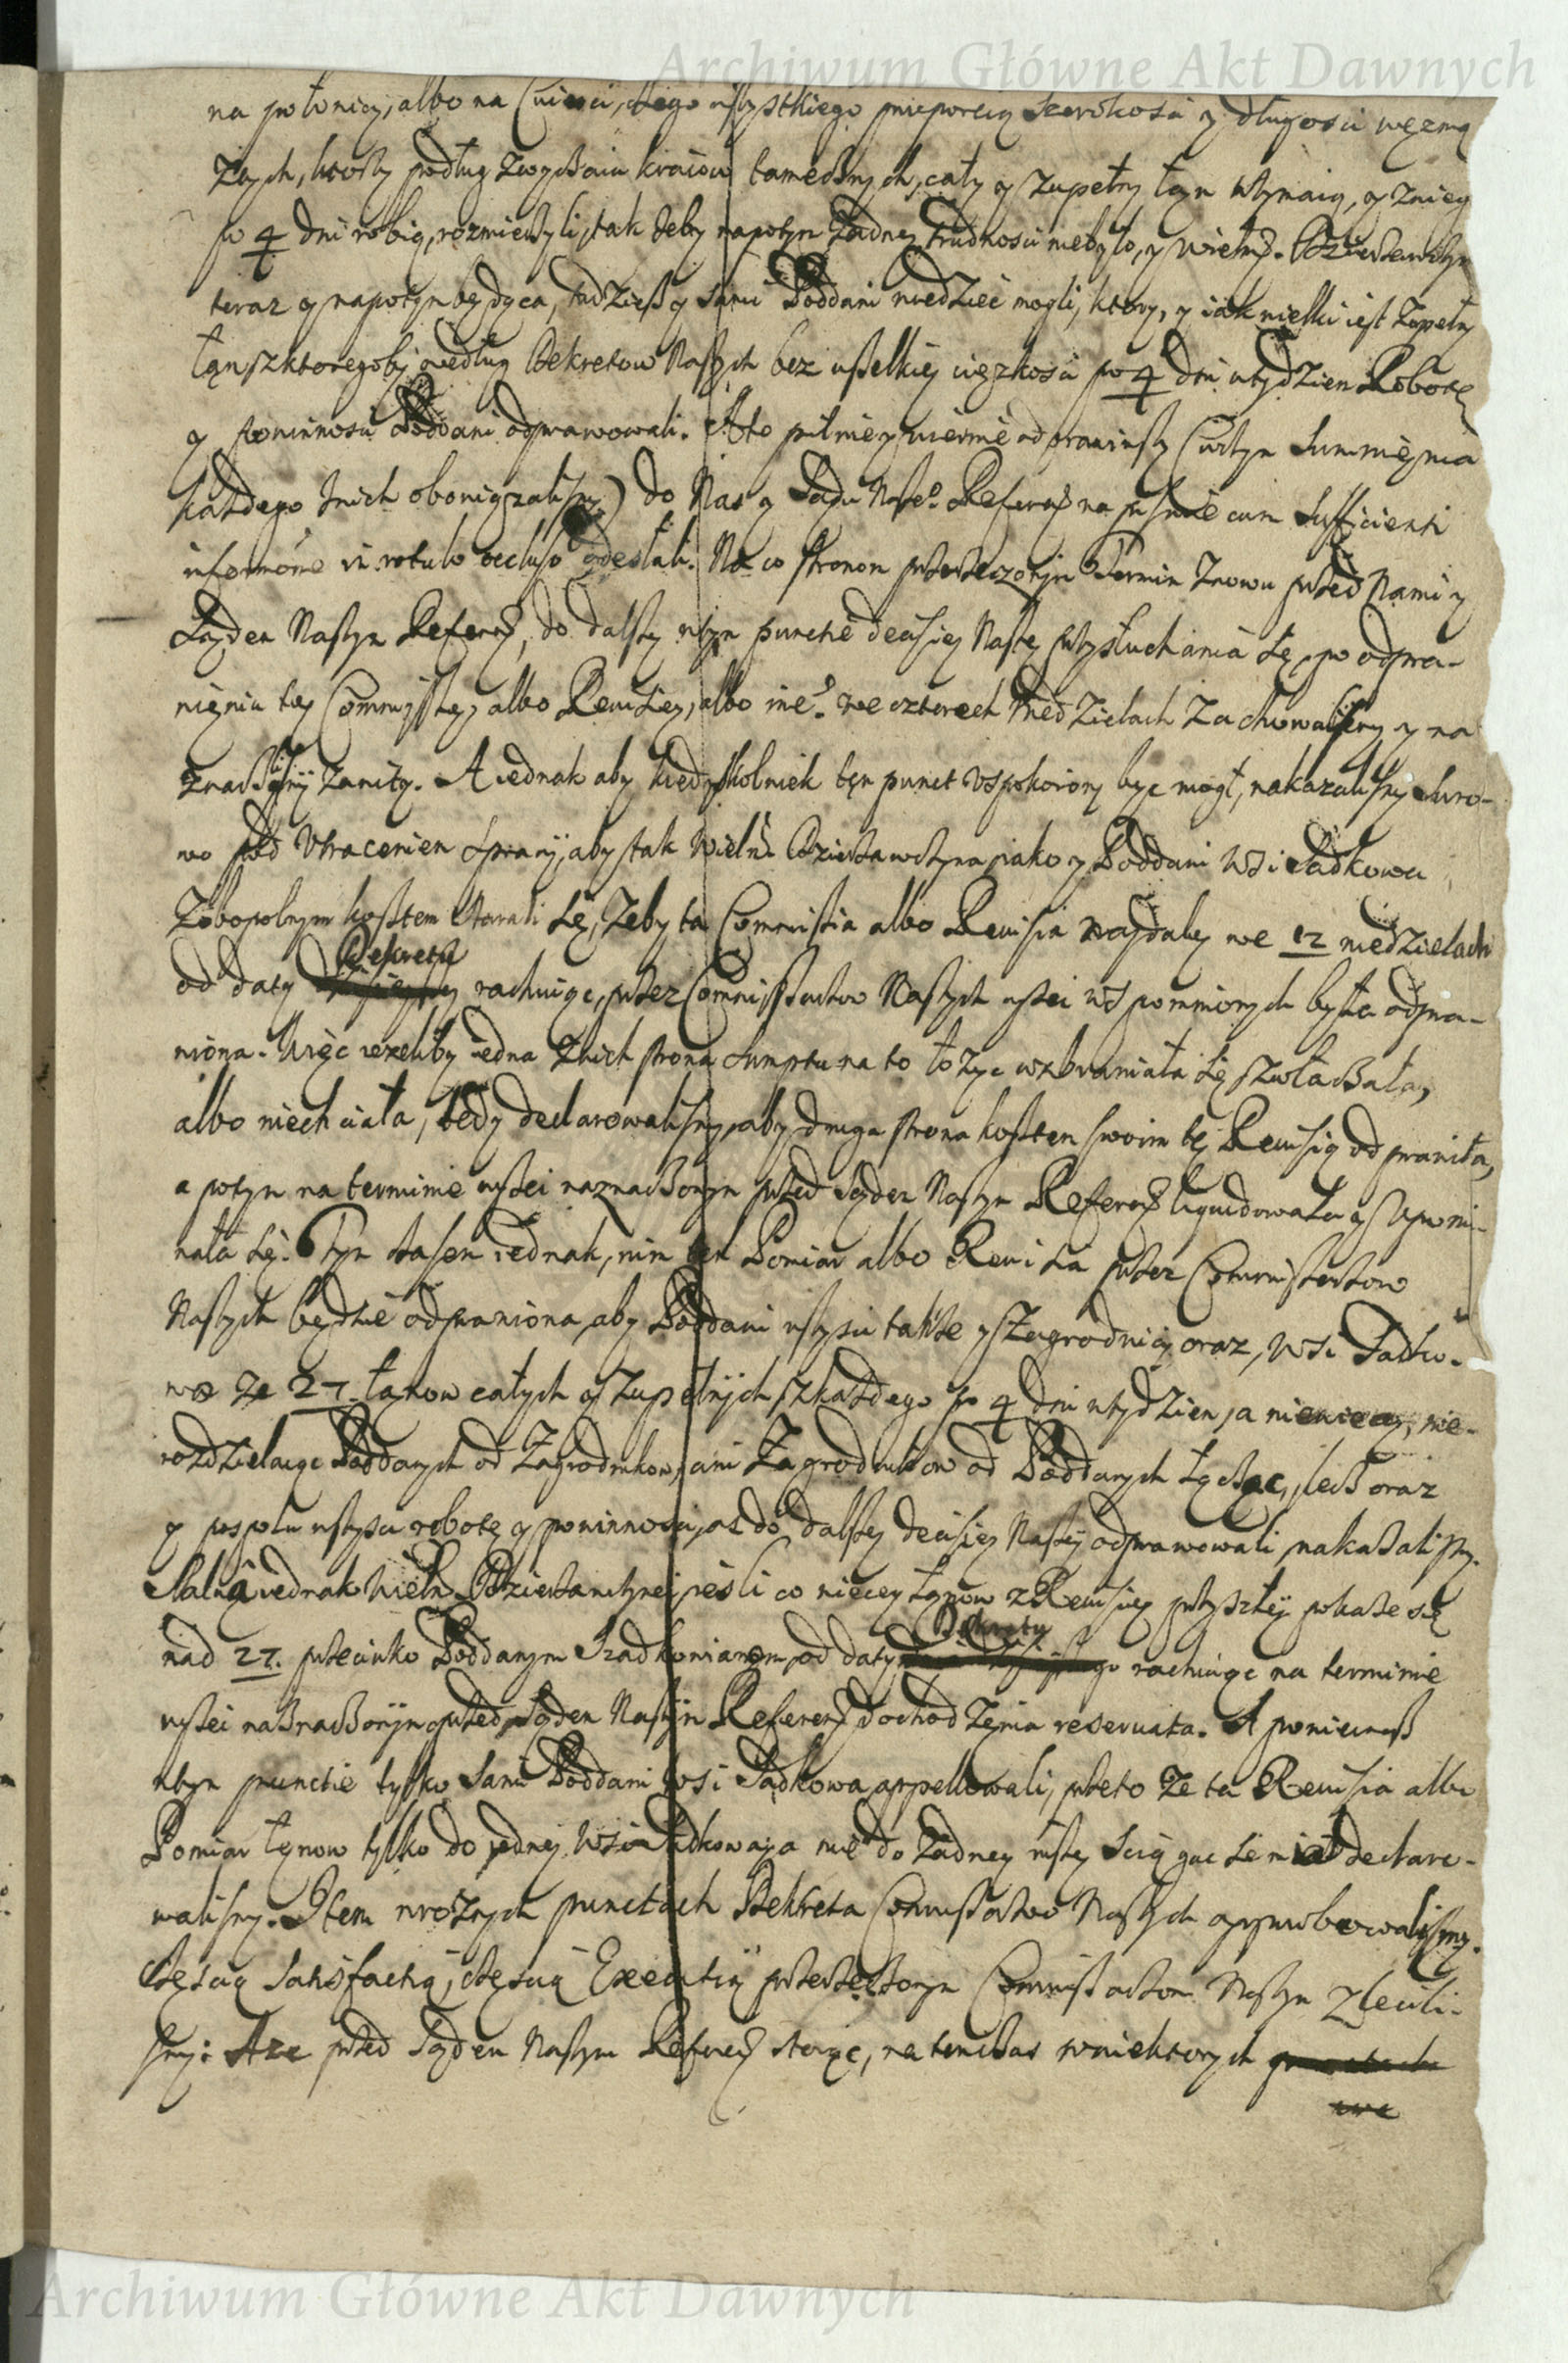 Archiwum Główne Akt Dawnych
na połowicy, albo na Cwierci, tego wszystkiego proporcią szerokości y długości wezmą
Zych, ktorzy podług zwyczaiu kraiow tamecznych, cały y zupełny łan trzymaią, y z niego
po 4 dni robią, rozmierzyli, tak żeby napotym żadney trudności niebyło, y Wielm. Dzierżawczyni
teraz y napotym będąca, tudziesz y sami Poddani wiedzieć mogli, ktory, y iak wielki iest zupełny
łan, z ktoregoby według Dekretow Naszych bez wszelkiey ciężkości po 4 dni w tydzien Robotę
y powinności Poddani odprawowali. A to pilnie y wiernie odprawiwszy (w czym sumnięnia
każdego z nich obowiązalismy) do Nas y Sądu Nasze° Referen na pismie cum sufficienti
informône in rotulo occluso odesłali. Na co stronom przerzeczonym Termin znowu przed Nami y
Sądem Naszym Referen, do dalszey w tym punctie decisiey Naszey przysłuchania się, po odpra-
wieniu tey Commissiey, albo Rewisiey, albo nie, we czterech Niedzielach zachowalismy y na
znaczylismy zawity. A iednak aby kiedyszkolwiek ten punct uspokoiony być mogł, nakazalismy suro-
wo pod utraceniem sprawy, aby tak Wielm. Dzierżawczyna, iako y Poddani Wsi Sadkowa
Zobopolnym kosztem starali się, żeby ta Commissia albo Rewisia naydaley we 12 niedzielach
od daty Dekretu rachuiąc, przez Commissarzow Naszych wyżei wspomnionych była odpra-
wiona. Więc ieżeliby iedna z nich strona sumptu na to łożyc wzbraniała się, zwłaczała,
albo niechciała, tedy declarowalismy, aby druga strona kosztem swoim tę Rewisią odprawiła,
a potym na terminie wyżei naznaczonym przed Sądem Naszym Referen liquidowała y upomi-
nała się. Tym czasem iednak, nim ten Pomiar albo Rewisia przez Commissarzow
Naszych będzie odprawiona, aby Poddani wszyscy także y Zagrodnicy oraz, Wsi Sadko-
wa ze 27 łanow całych y zupełnych, z każdego po 4 dni w tydzien, a nie więcey, nie-
rozdzielaiąc Poddanych od Zagrodnikow, ani Zagrodnikow od Poddanych łącząc, lecz oraz
y pospołu wszyscy robotę y powinności, aż do dalszey decisiey Naszey odprawowali, nakazalismy.
Salva iednak Wielm. Dzierżawczynei, iesli co więcey łanow z Rewisiey przyszłey pokaże się
nad 27. przeciwko Poddanym Szadkowianom, od daty Dekretu rachuiąc na terminie
wyżei naznaczonym, przed Sądem Naszym Referen dochodzenia reservata. A poniewasz
w tym punctie tylko sami Poddani Wsi Sadkowa appellowali, przeto że ta Rewisia albo
Pomiar łanow tylko do iedney Wsi Sadkowa, a nie do żadney inszey sciągac się ma, declaro-
walismy. Item w rożnych punctach Dekreta Commissarzow Naszych approbowalismy.
Czescią Satisfactią, częscią Executią przerzeczonym Commissarzom Naszym zlecili-
smy: A że przed Sądem Naszym Referen stoiąc, na tenczas w niektorych
Archiwum Główne Akt Dawnych